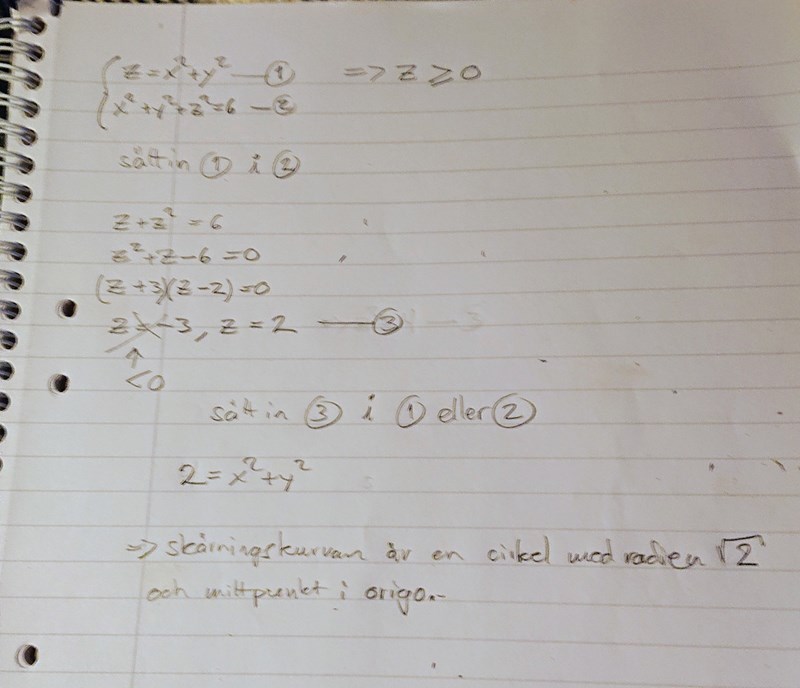 z=x²+y² — ① => z ≥ 0
x²+y²+z²=6 — ②
sätt in ① i ②
z+z² = 6
z²+z-6=0
(z+3)(z-2)=0
z=-3, z=2 — ③
↑
<0
sätt in ③ i ① eller ②
2=x²+y²
=> skärningskurvan är en cirkel med radien √2
och mittpunkt i origo.-